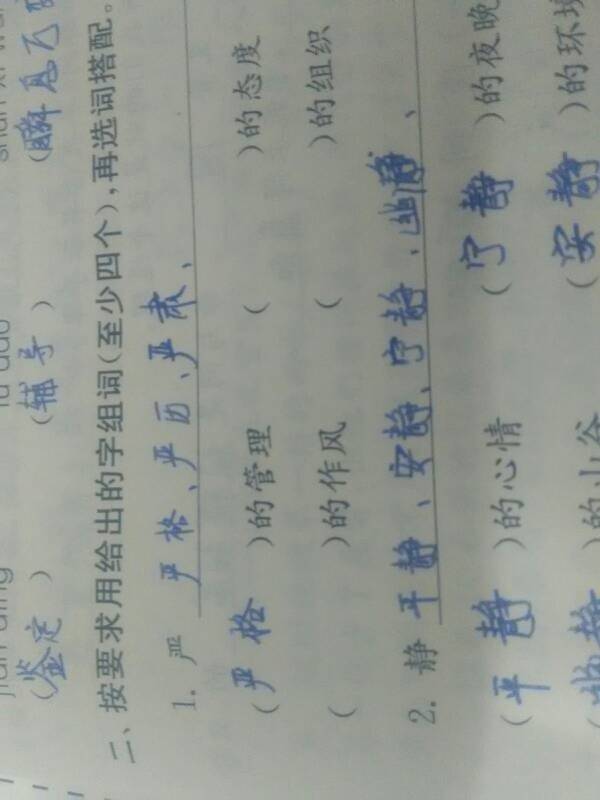 jiàn dìng fǔ dǎo shùn xī wàn
(鉴定) (辅导) (瞬息万
二、按要求用给出的字组词(至少四个),再选词搭配。
1. 严 严格、严历、严肃、
(严格)的管理 ( )的态度
( )的作风 ( )的组织
2. 静 平静、安静、宁静、幽静、
(平静)的心情 (宁静)的夜晚
(幽静)的山谷 (安静)的环境